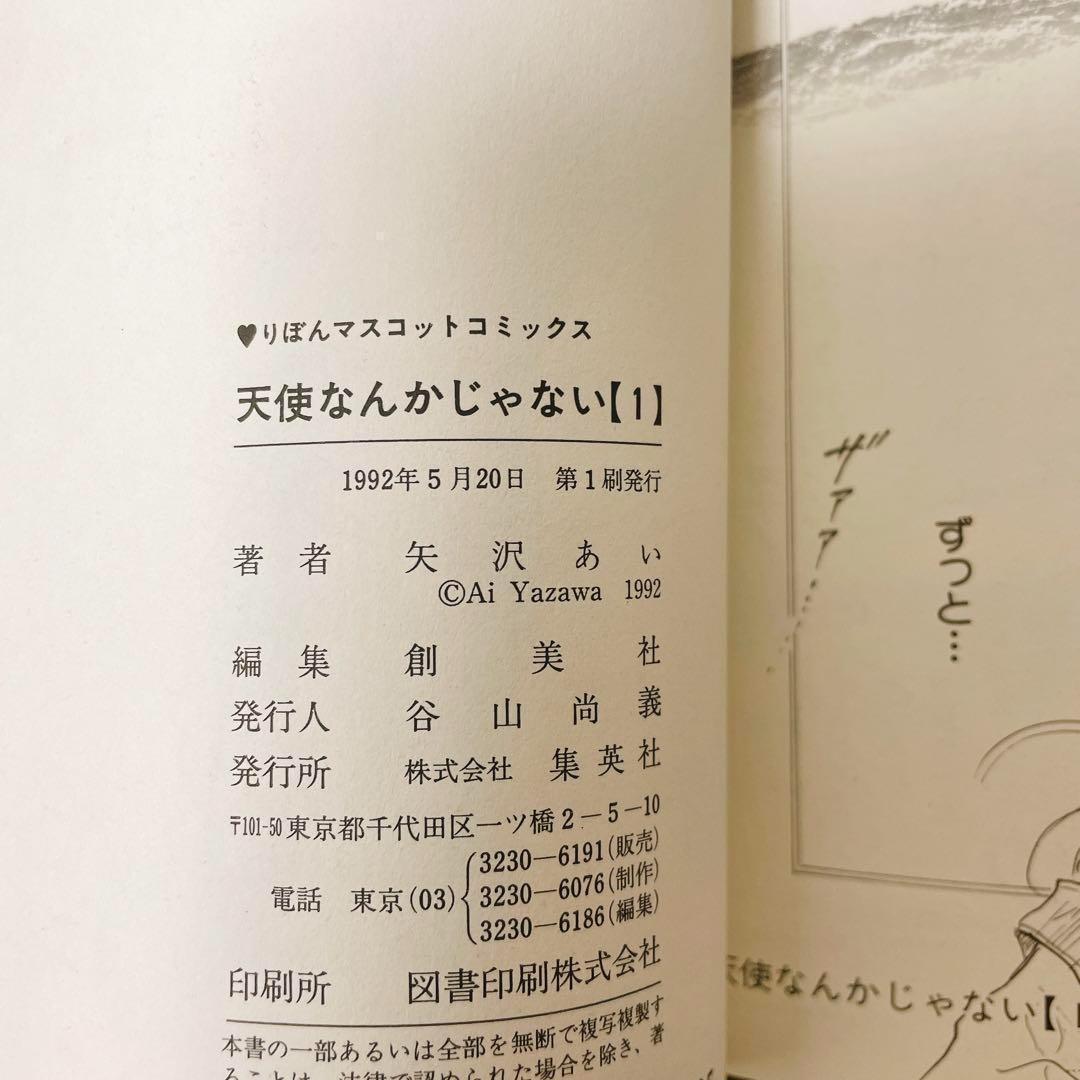 ♥りぼんマスコットコミックス
天使なんかじゃない【1】
1992年5月20日 第1刷発行
著者 矢沢あい
©Ai Yazawa 1992
編集 創美社
発行人 谷山尚義
発行所 株式会社 集英社
〒101-50 東京都千代田区一ツ橋2-5-10
3230—6191(販売)
電話 東京(03) 3230—6076(制作)
3230—6186(編集)
印刷所 図書印刷株式会社
本書の一部あるいは全部を無断で複写複製す
ることは、法律で認められた場合を除き、著
ザァァァ…
ずっと…
天使なんかじゃない【1